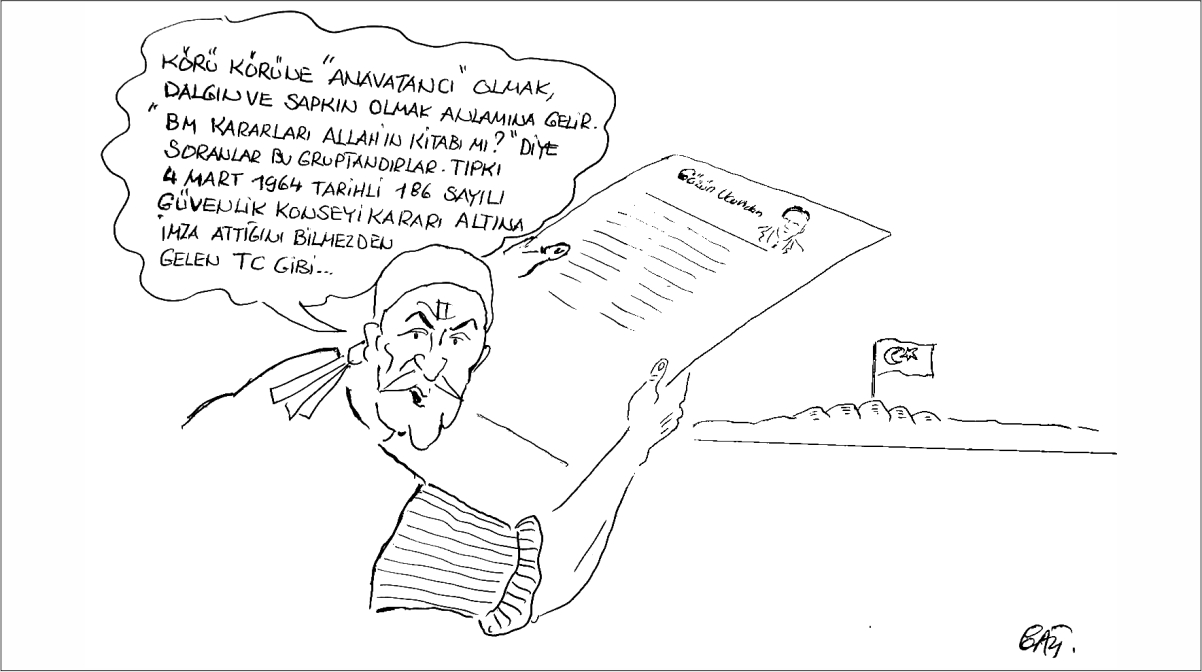 KÖRÜ KÖRÜNE "ANAVATANCI" OLMAK,
DALGIN VE SAPKIN OLMAK ANLAMINA GELİR.
"BM KARARLARI ALLAH'IN KİTABI MI?" DİYE
SORANLAR BU GRUPTANDIRLAR. TIPKI
4 MART 1964 TARİHLİ 186 SAYILI
GÜVENLİK KONSEYİ KARARI ALTINA
İMZA ATTIĞINI BİLMEZDEN
GELEN TC GİBİ...
Gözün Ucundan